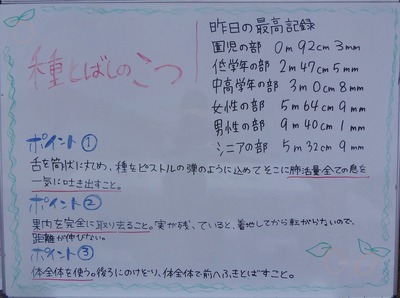 種とばしのこつ
昨日の最高記録
園児の部 0m92cm3mm
低学年の部 2m47cm5mm
中高学年の部 3m0cm8mm
女性の部 5m64cm9mm
男性の部 9m40cm1mm
シニアの部 5m32cm9mm
ポイント①
舌を筒状に丸め、種をピストルの弾のように込めてそこに肺活量全ての息を
一気に吐き出すこと。
ポイント②
果肉を完全に取り去ること。実が残っていると、着地してから転がらないので、
距離が伸びない。
ポイント③
体全体を使う。後ろにのけどり、体全体で前へふきとばすこと。